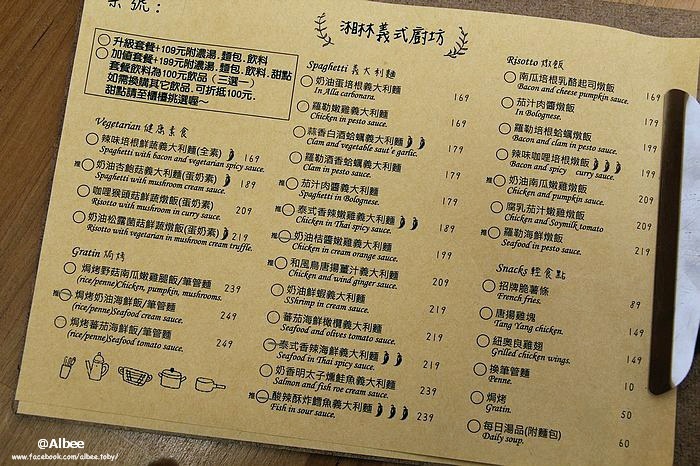 桌號：
湘林義式廚坊
升級套餐+109元附濃湯.麵包.飲料
加值套餐+199元附濃湯.麵包.飲料.甜點
套餐飲料為100元飲品（三選一）
如需換購其它飲品.可折抵100元.
甜點請至櫃檯挑選喔～
Vegetarian 健康素食
辣味培根鮮蔬義大利麵(全素) 169
Spaghetti with bacon and vegetarian spicy sauce.
推 奶油杏鮑菇義大利麵(蛋奶素) 189
Spaghetti with mushroom cream sauce.
咖哩猴頭菇鮮蔬燉飯(蛋奶素) 209
Risotto with mushroom in curry sauce.
奶油松露菌菇鮮蔬燉飯(蛋奶素) 219
Risotto with vegetarian in mushroom cream truffle.
Gratin 焗烤
焗烤野菇南瓜嫩雞腿飯/筆管麵 239
(rice/penne)Chicken, pumpkin, mushrooms.
推 焗烤奶油海鮮飯/筆管麵 249
(rice/penne)Seafood cream sauce.
焗烤蕃茄海鮮飯/筆管麵 249
(rice/penne)Seafood tomato sauce.
Spaghetti 義大利麵
奶油蛋培根義大利麵 169
In Alla carbonara.
羅勒嫩雞義大利麵 199
Chicken in pesto sauce.
蒜香白酒蛤蠣義大利麵 179
Clam and vegetable saut'e garlic.
羅勒酒香蛤蠣義大利麵 179
Clam in pesto sauce.
推 茄汁肉醬義大利麵 179
Spaghetti in Bolognese.
推 泰式香辣嫩雞義大利麵 189
Chicken in Thai spicy sauce.
奶油桔醬嫩雞義大利麵 199
Chicken in cream orange sauce.
推 和風鳥唐揚薑汁義大利麵 209
Chicken and wind ginger sauce.
奶油鮮蝦義大利麵 219
SShrimp in cream sauce.
蕃茄海鮮橄欖義大利麵 219
Seafood and olives tomato sauce.
推 泰式香辣海鮮義大利麵 219
Seafood in Thai spicy sauce.
奶香明太子燻鮭魚義大利麵 239
Salmon and fish roe cream sauce.
推 酸辣酥炸鱈魚義大利麵 239
Fish in sour sauce.
Risotto 燉飯
南瓜培根乳酪起司燉飯 169
Bacon and cheese pumpkin sauce.
茄汁肉醬燉飯 179
In Bolognese.
羅勒培根蛤蠣燉飯 199
Bacon and clam in pesto sauce.
辣味咖哩培根燉飯 199
Bacon and spicy curry sauce.
推 奶油南瓜嫩雞燉飯 209
Chicken and pumpkin sauce.
腐乳茄汁嫩雞燉飯 209
Chicken and Soymilk tomato
推 羅勒海鮮燉飯 219
Seafood in pesto sauce.
Snacks 輕食點
招牌脆薯條 89
French fries.
唐揚雞塊 149
Tang Yang chicken.
紐奧良雞翅 149
Grilled chicken wings.
換筆管麵 10
Penne.
焗烤 50
Gratin.
每日湯品(附麵包) 60
Daily soup.
@Albee
www.facebook.com/albee.toby/